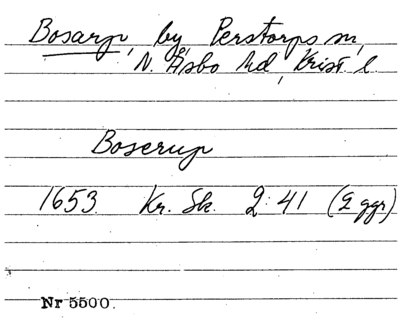 Bosarp, by, Perstorps sn,
N. Åsbo hd, Krist. l.
Boserup
1653 Kr. Sk. 2:41 (2 ggr)
Nr 5500.